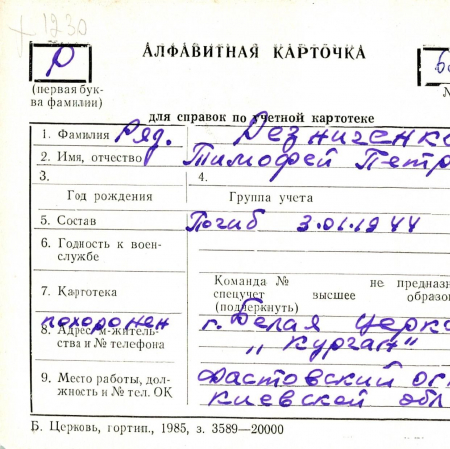 + 1230
АЛФАВИТНАЯ КАРТОЧКА
Р
(первая бук-
ва фамилии)
для справок по учетной картотеке
1. Фамилия Ряд. Резниченко
2. Имя, отчество Тимофей Петр
3. 4.
Год рождения Группа учета
5. Состав Погиб 3.01.1944
6. Годность к воен-
службе
7. Картотека
Команда № не предназн
спецучет высшее образо
(подчеркнуть)
похоронен г. Белая Церко
8. Адрес м-житель-
ства и № телефона „Курган"
9. Место работы, дол- Фастовский
жность и № тел. ОК Киевской обл
Б. Церковь, гортип., 1985, з. 3589—20000